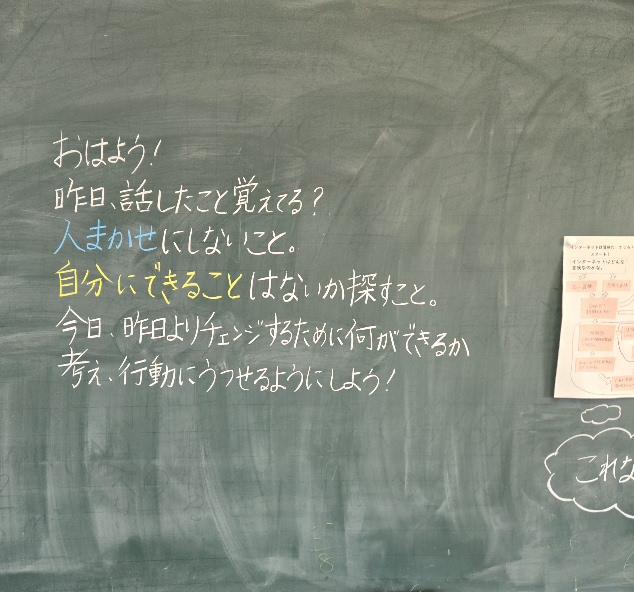 おはよう!
昨日、話したこと覚えてる?
人まかせにしないこと。
自分にできることはないか探すこと。
今日、昨日よりチェンジするために何ができるか
考え、行動にうつせるようにしよう!
インターネットはどんな
これな